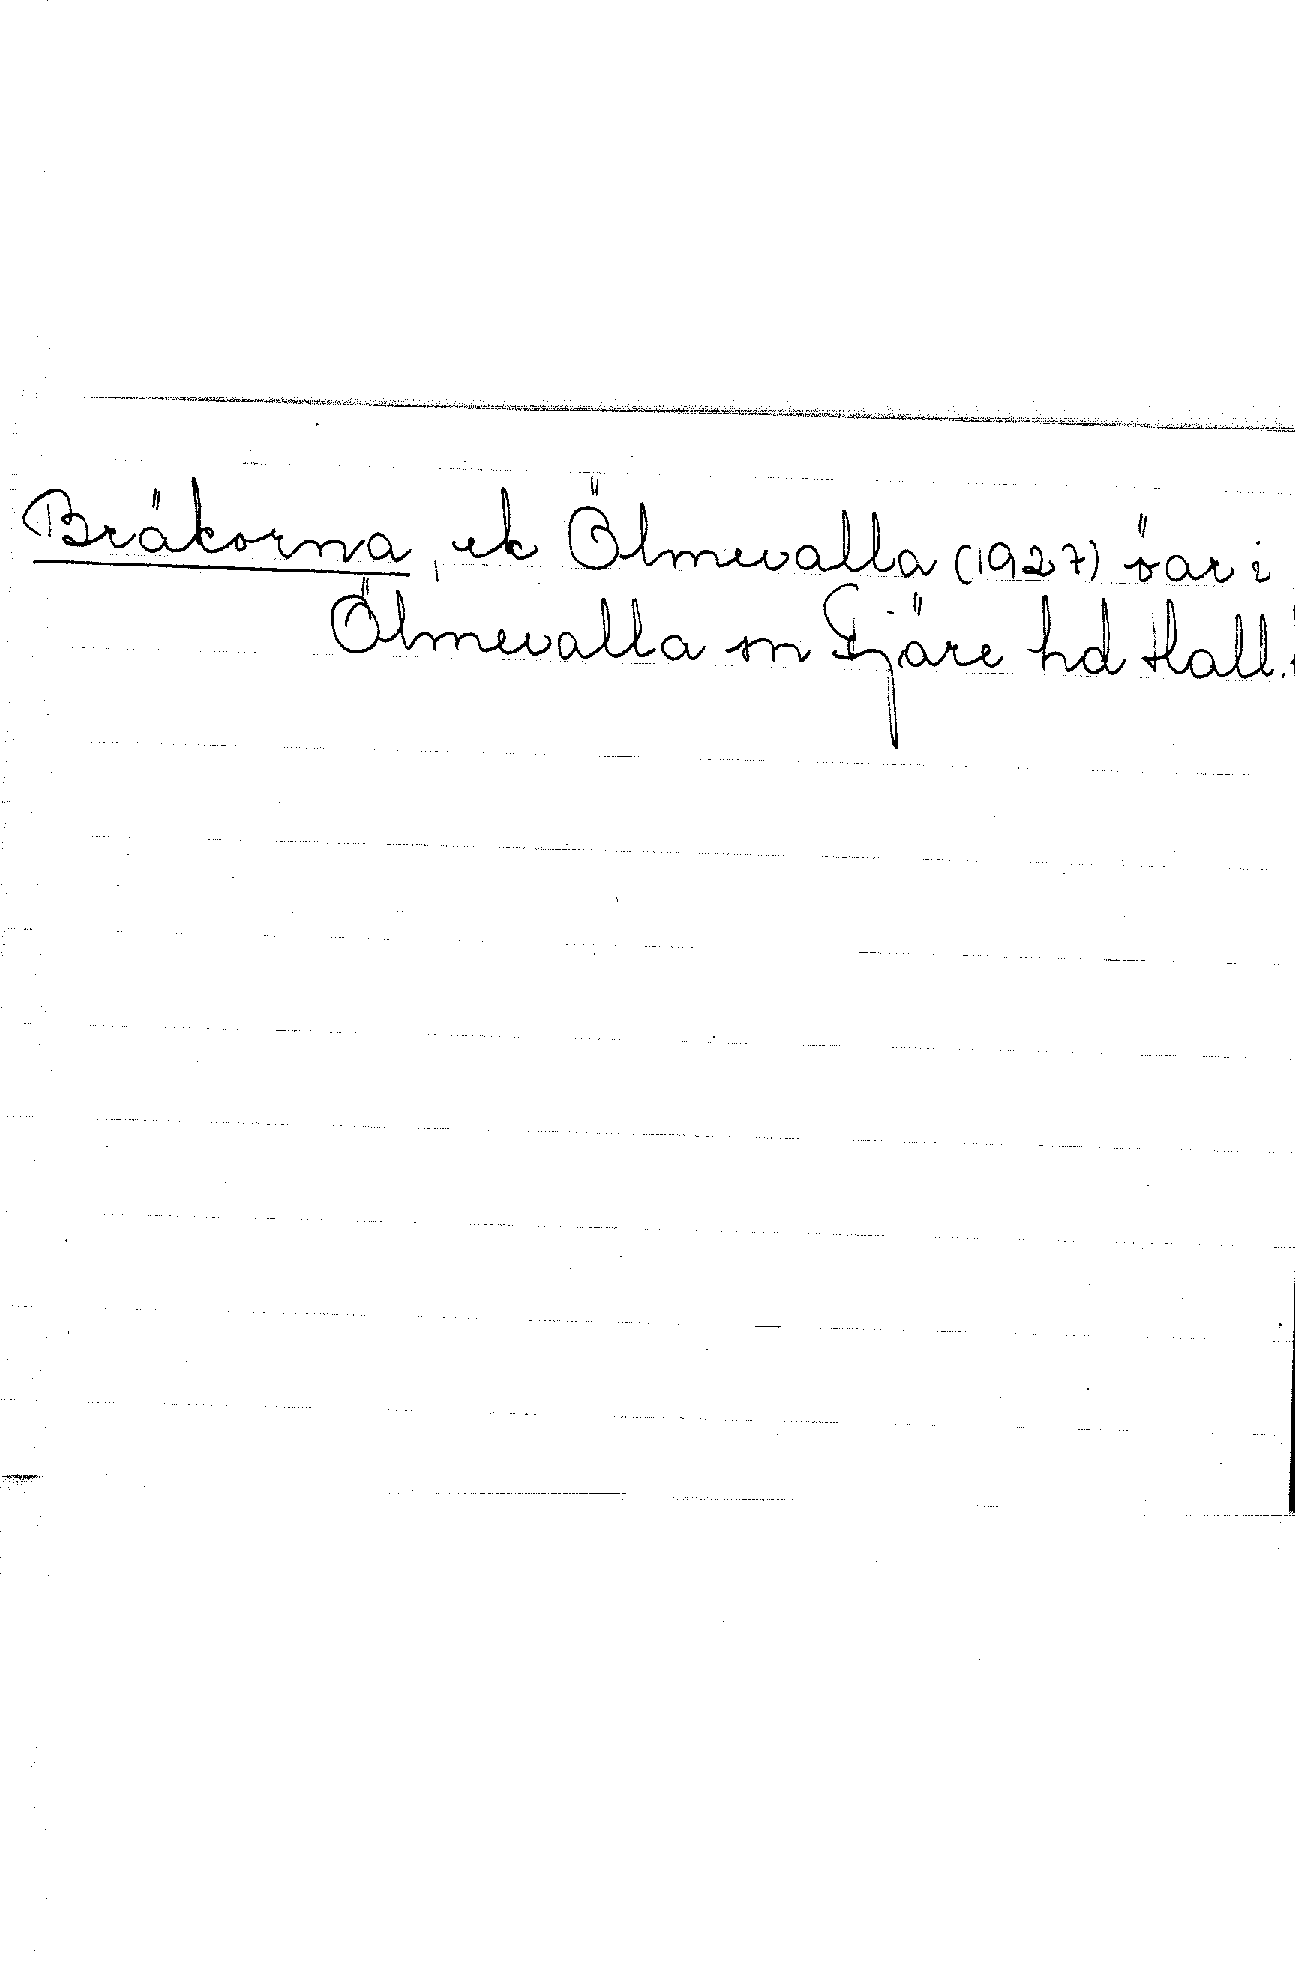 Bräkorna, ek Ölmevalla (1927) öar i
Ölmevalla sn Fjäre hd Hall.